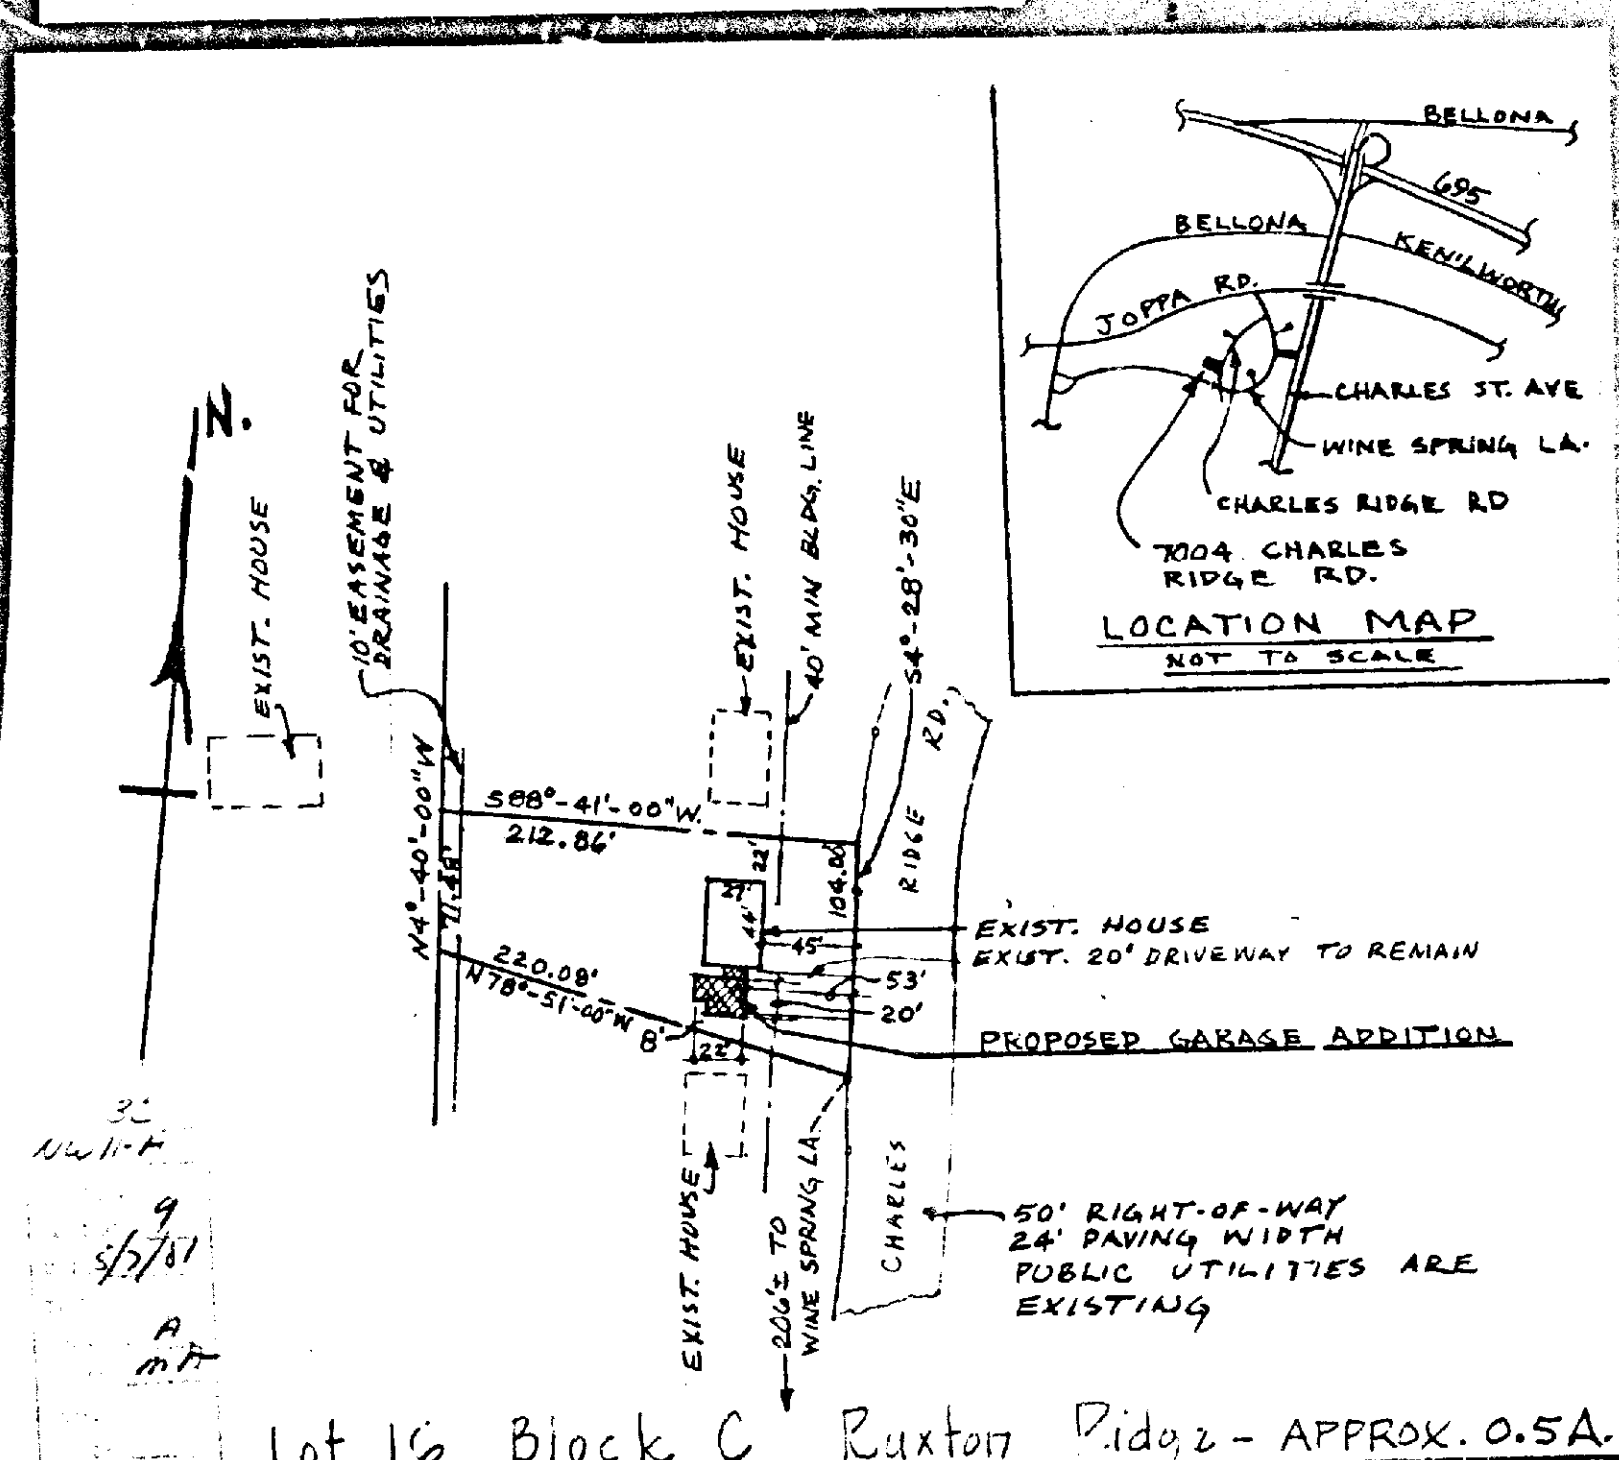 BELLONA
695
BELLONA
KENILWORTH
JOPPA RD.
CHARLES ST. AVE
WINE SPRING LA.
CHARLES RIDGE RD
7004 CHARLES
RIDGE RD.
LOCATION MAP
NOT TO SCALE
N.
EXIST. HOUSE
10' EASEMENT FOR
DRAINAGE & UTILITIES
EXIST. HOUSE
40' MIN BLDG. LINE
S4°-28'-30"E
RIDGE RD.
N4°-40'-00"W
71.48'
S88°-41'-00"W.
212.86'
22'
104.00
27'
44'
45'
EXIST. HOUSE
EXIST. 20' DRIVEWAY TO REMAIN
53'
20'
220.09'
N78°-51'-00"W
8'
22'
PROPOSED GARAGE ADDITION
EXIST. HOUSE
206'± TO
WINE SPRING LA.
CHARLES
50' RIGHT-OF-WAY
24' PAVING WIDTH
PUBLIC UTILITIES ARE
EXISTING
9
A
Block C Ruxton Ridge - APPROX. 0.5A.